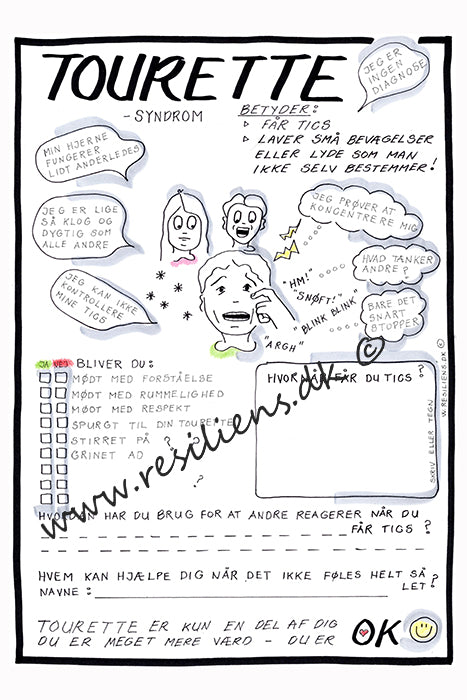 TOURETTE
- SYNDROM
BETYDER:
▷ FÅR TICS
▷ LAVER SMÅ BEVÆGELSER
ELLER LYDE SOM MAN
IKKE SELV BESTEMMER!
JEG ER
INGEN
DIAGNOSE
MIN HJERNE
FUNGERER
LIDT ANDERLEDES
JEG ER LIGE
SÅ KLOG OG
DYGTIG SOM
ALLE ANDRE
JEG KAN IKKE
KONTROLLERE
MINE TICS
JEG PRØVER AT
KONCENTRERE MIG
HVAD TÆNKER
ANDRE?
BARE DET
SNART
STOPPER
"HM!"
"SNØFT!"
"BLINK BLINK"
"ARGH"
JA NEJ BLIVER DU:
MØDT MED FORSTÅELSE
MØDT MED RUMMELIGHED
MØDT MED RESPEKT
SPURGT TIL DIN TOURETTE
STIRRET PÅ ?
GRINET AD
?
HVORNÅR FÅR DU TICS?
SKRIV ELLER TEGN
W.RESILIENS.DK ©
www.resiliens.dk ©
HVORDAN HAR DU BRUG FOR AT ANDRE REAGERER NÅR DU
FÅR TICS?
HVEM KAN HJÆLPE DIG NÅR DET IKKE FØLES HELT SÅ
NAVNE: LET?
TOURETTE ER KUN EN DEL AF DIG
DU ER MEGET MERE VÆRD - DU ER OK